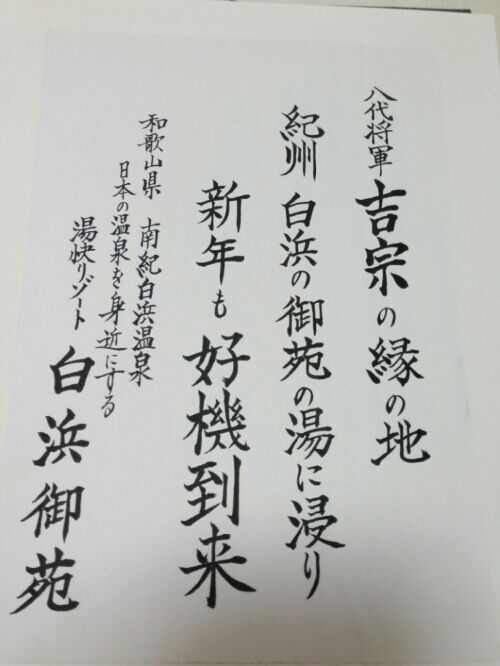 八代将軍 吉宗の縁の地
紀州 白浜の御苑の湯に浸り
新年も 好機到来
和歌山県 南紀白浜温泉
日本の温泉を身近にする
湯快リゾート 白浜御苑